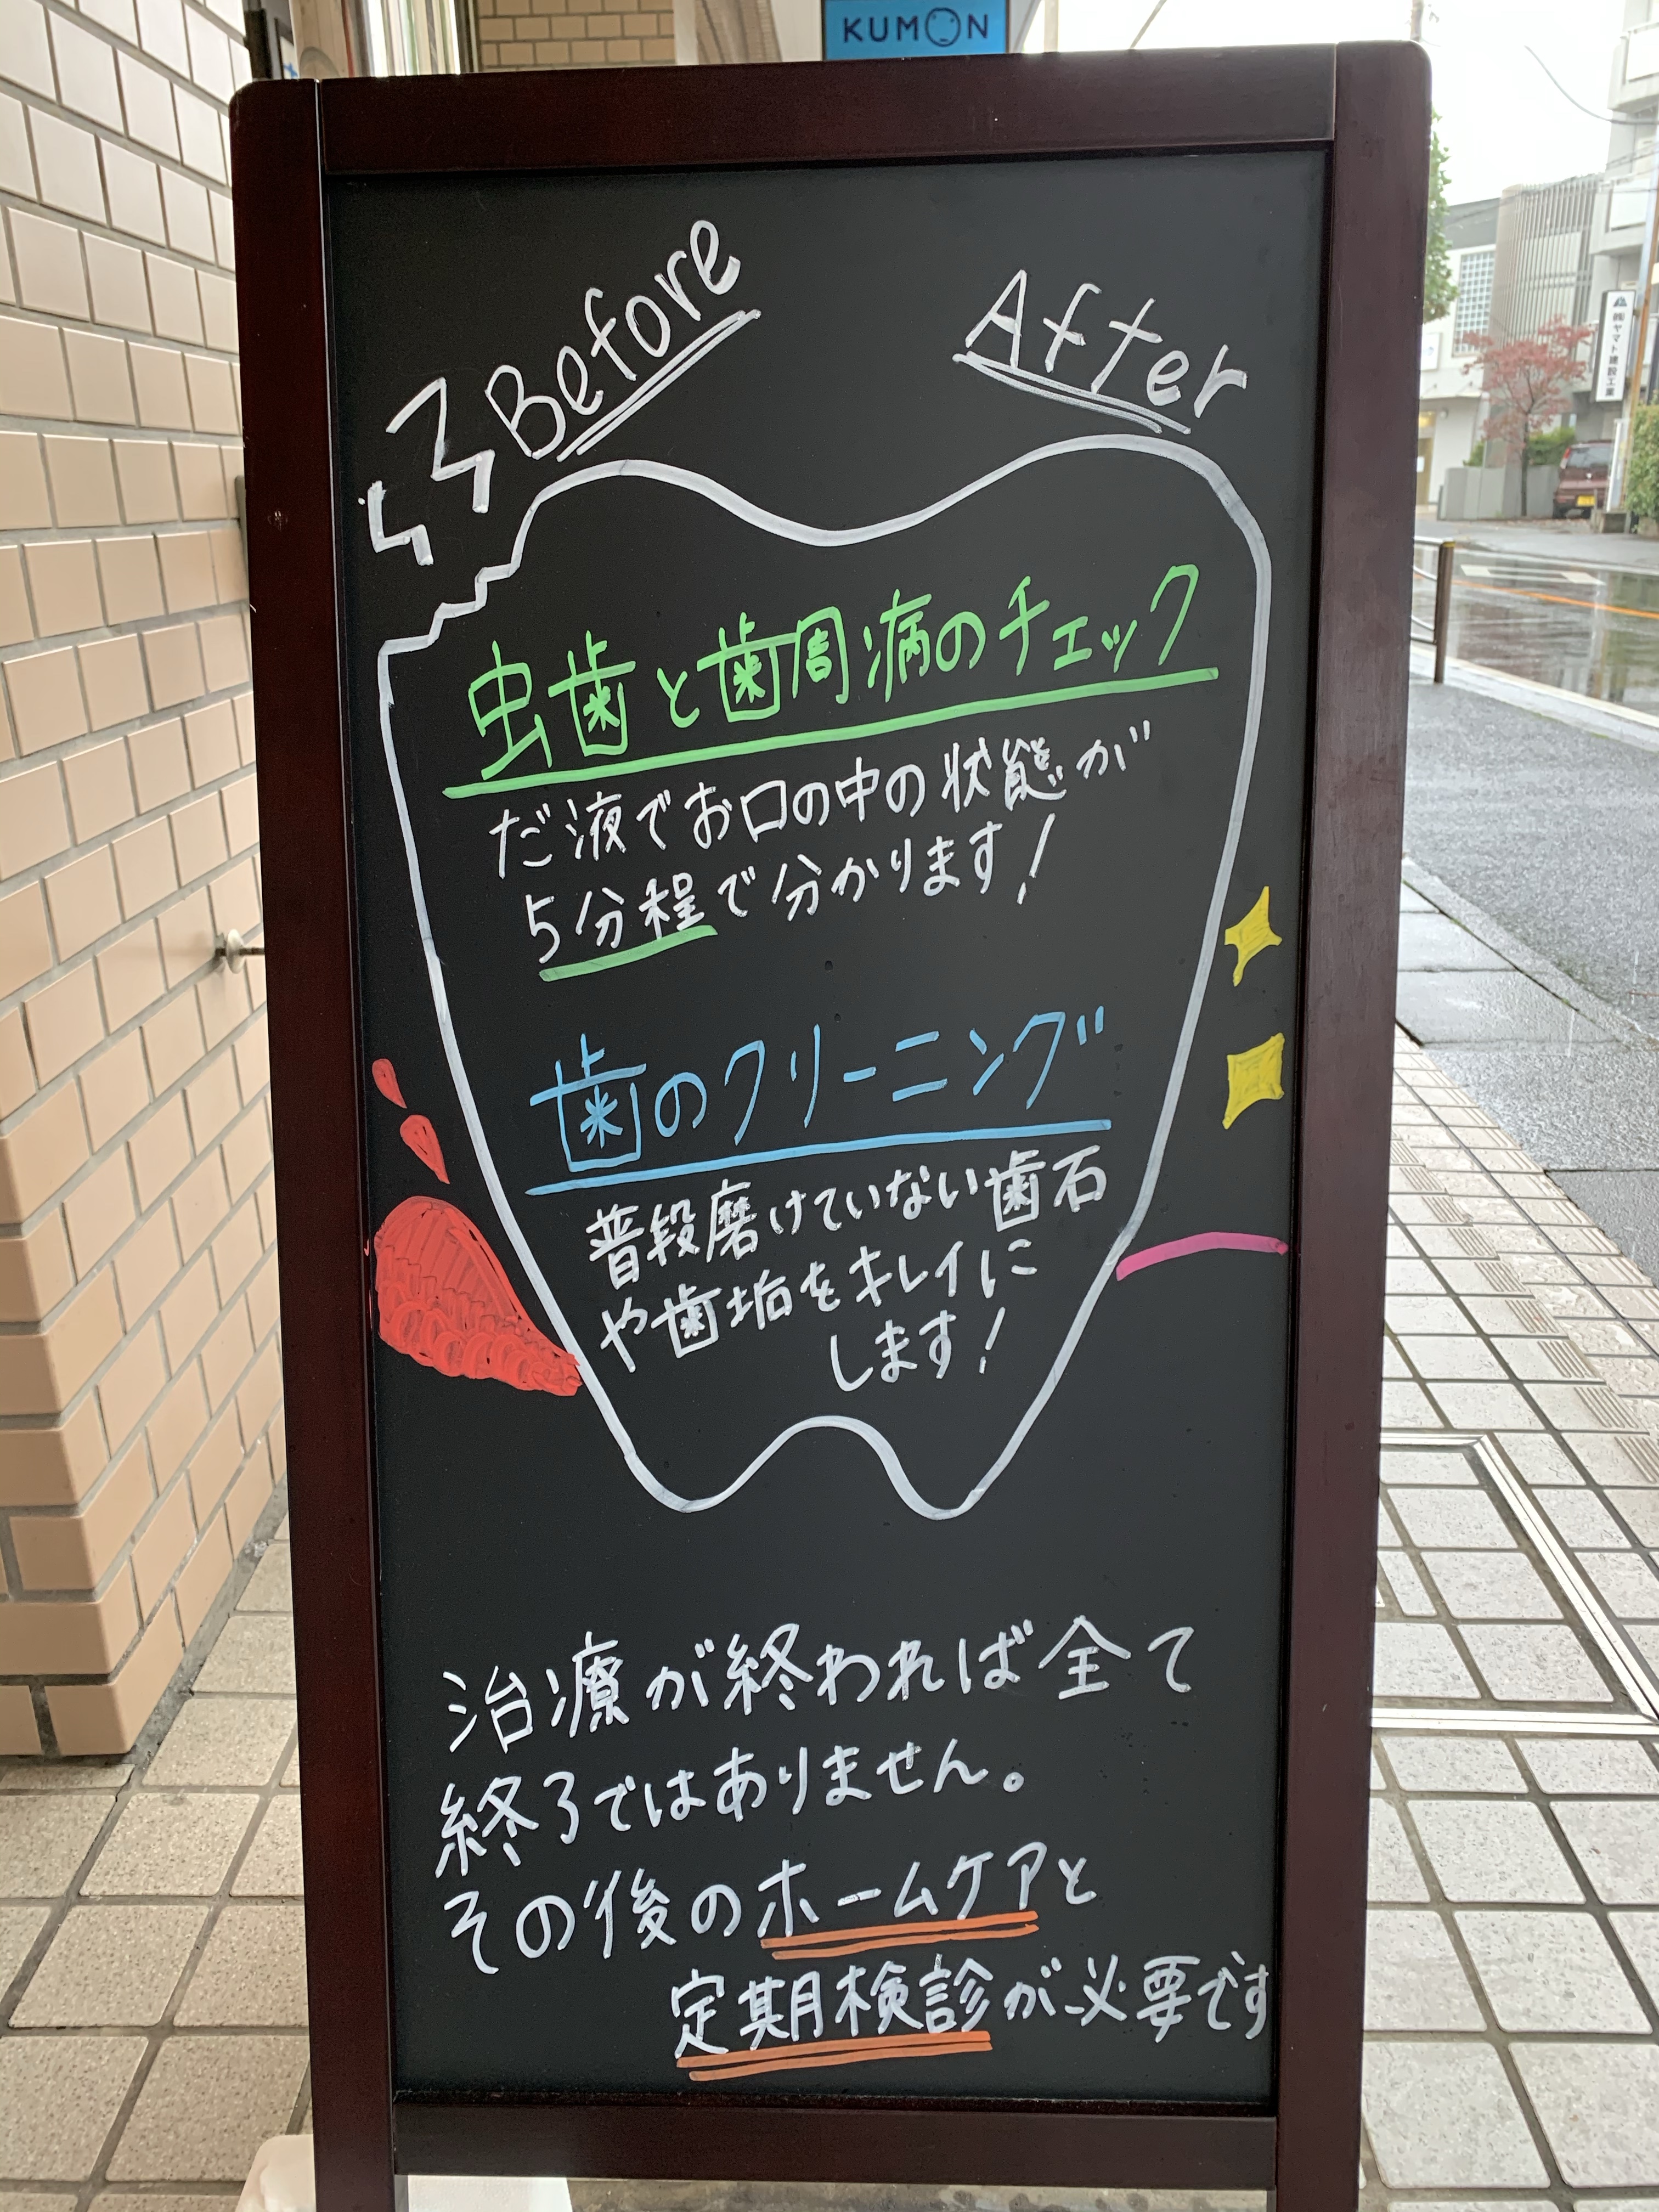 KUMON
Before
After
虫歯と歯周病のチェック
だ液でお口の中の状態が
5分程で分かります!
歯のクリーニング
普段磨けていない歯石
や歯垢をキレイに
します!
治療が終われば全て
終了ではありません。
その後のホームケアと
定期検診が必要です
㈱ヤマト建設工業